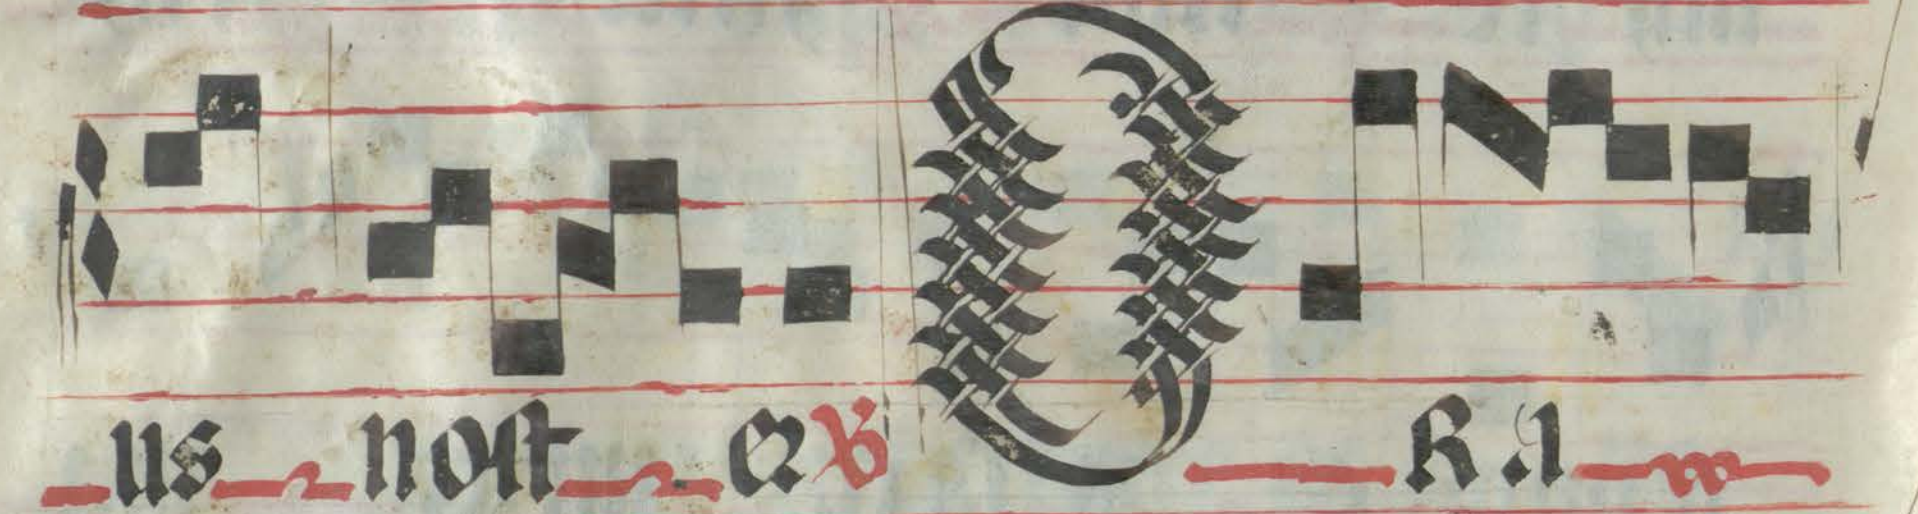 us nost er ℣ O Ra